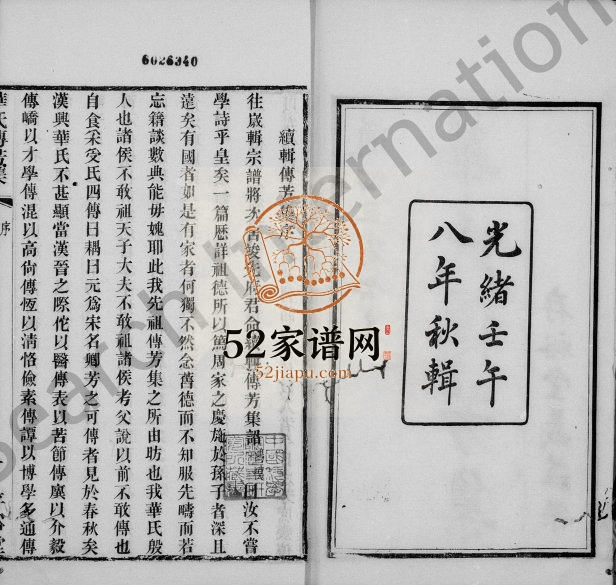 光緒壬午
八年秋輯
6026340
續輯傳芳集序
往歲輯宗譜將次
君命
傳芳集
曰汝不嘗
學詩乎皇矣一篇歷詳祖德所以篤周家之慶施於孫子者深且
遠矣有國者如是有家者何獨不然念舊德而不知服先疇而若
忘籍談數典能毋媿耶此我先祖傳芳集之所由昉也我華氏殷
人也諸侯不敢祖天子大夫不敢祖諸侯考父說以前不敢傳也
自食采受氏四傳曰耦曰元爲宋名卿芳之可傳者見於春秋矣
漢興華氏不甚顯當漢晉之際佗以醫傳表以苦節傳廙以介毅
傳嶠以才學傳混以高尙傳恆以清恪儉素傳譚以博學多通傳
華氏傳芳集
序
52家谱网
52jiapu.com
Search International